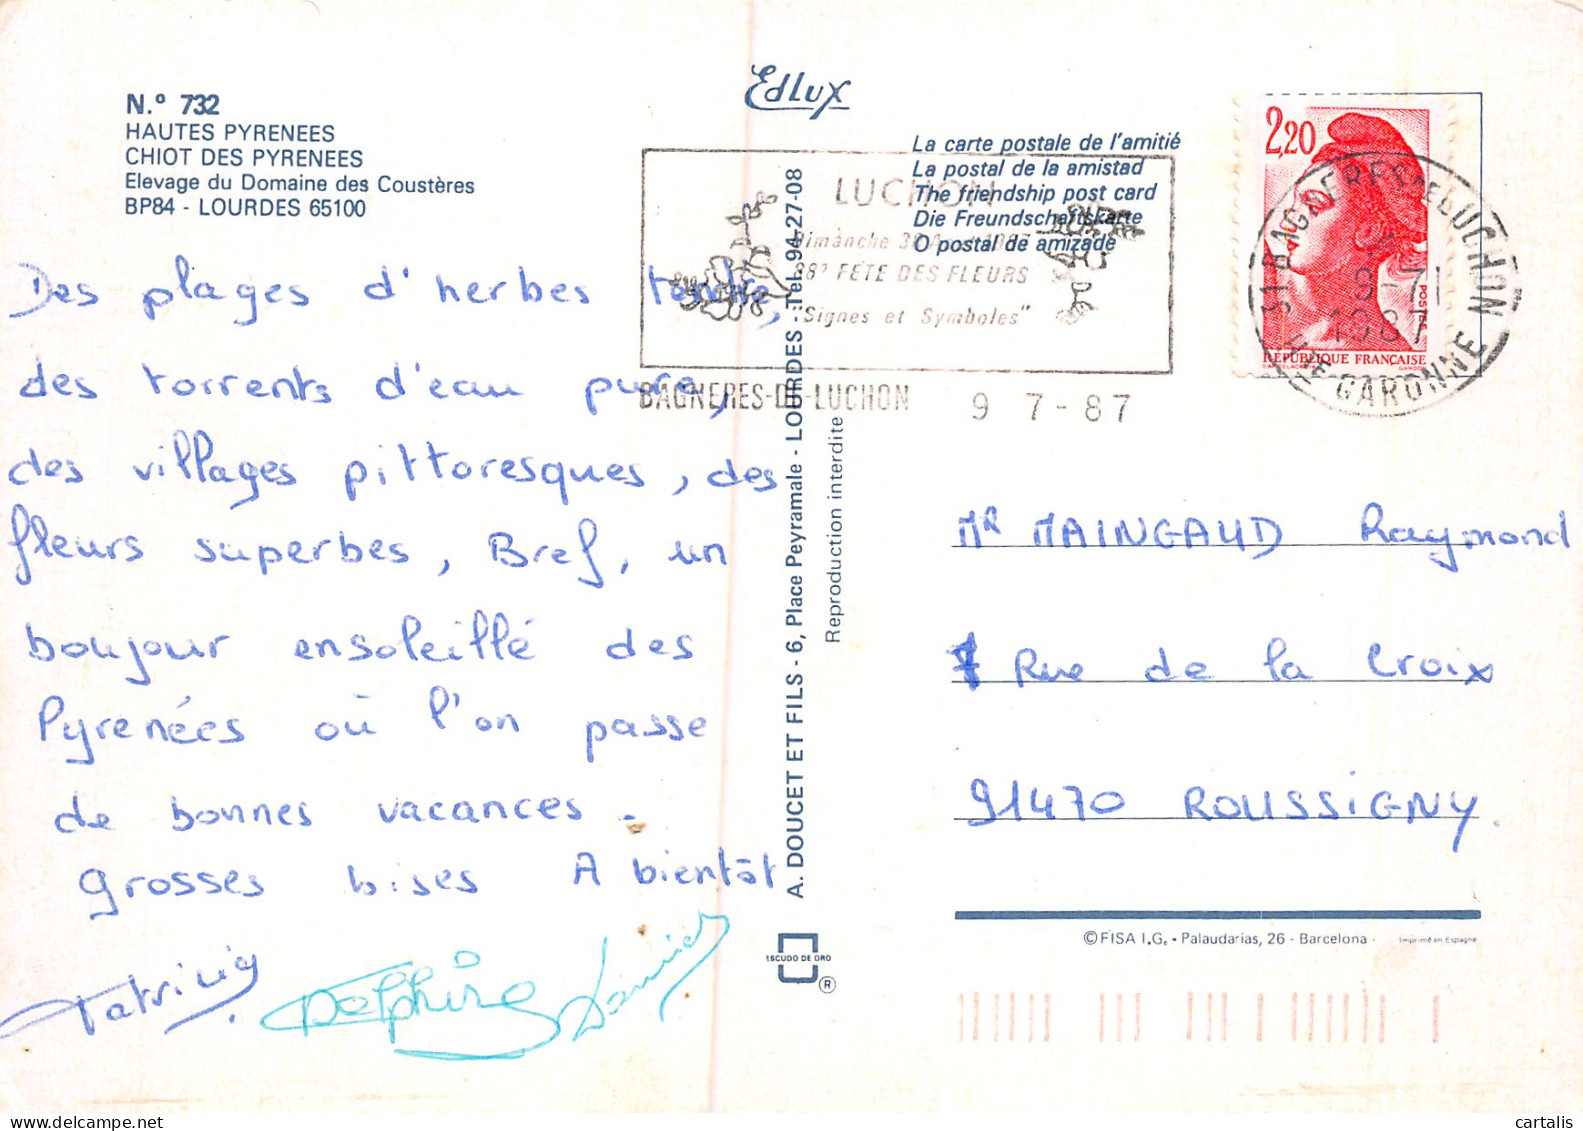 N.º 732
HAUTES PYRENEES
CHIOT DES PYRENEES
Elevage du Domaine des Coustères
BP84 - LOURDES 65100
Edlux
La carte postale de l'amitié
La postal de la amistad
The friendship post card
Die Freundschaftskarte
O postal de amizade
LUCHON
Dimanche 30 1987
88º FÊTE DES FLEURS
"Signes et Symboles"
BAGNERES-DE-LUCHON 9 7-87
2,20
POSTES
REPUBLIQUE FRANÇAISE
31 BAGNERES DE LUCHON
9-7
1987
HTE GARONNE
Des plages d'herbes tendre,
des torrents d'eau pure,
des villages pittoresques, des
fleurs superbes, Bref, un
boujour ensoleillé des
Pyrenées où l'on passe
de bonnes vacances.
grosses bises A bientôt
Patricia Delphine
A. DOUCET ET FILS - 6, Place Peyramale - LOURDES - Tél. 94-27-08
Reproduction interdite
Mr MAINGAUD Raymond
Rue de la Croix
91470 ROUSSIGNY.
ESCUDO DE ORO
®
© FISA I.G. - Palaudarias, 26 - Barcelona - Imprimé en Espagne
cartalis